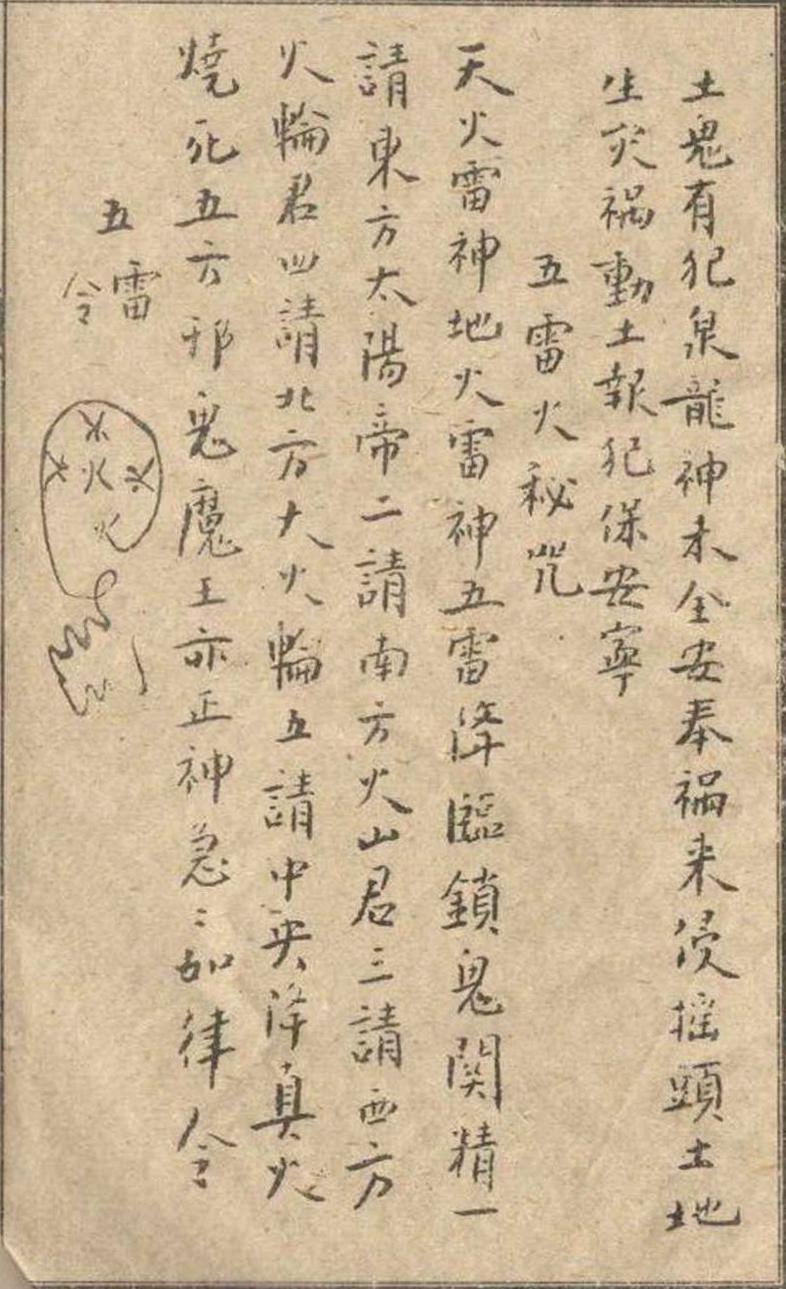 土鬼有犯泉龍神未全安奉禍来侵摇頭土地
生灾禍動土報犯保安寧
五雷火秘咒
天火雷神地火雷神五雷降臨鎖鬼関精一
請東方太陽帝二請南方火山君三請西方
火輪君四請北方大火輪五請中央降真火
燒死五方邪鬼魔王亦正神急〻如律令
五雷令
火火火火火